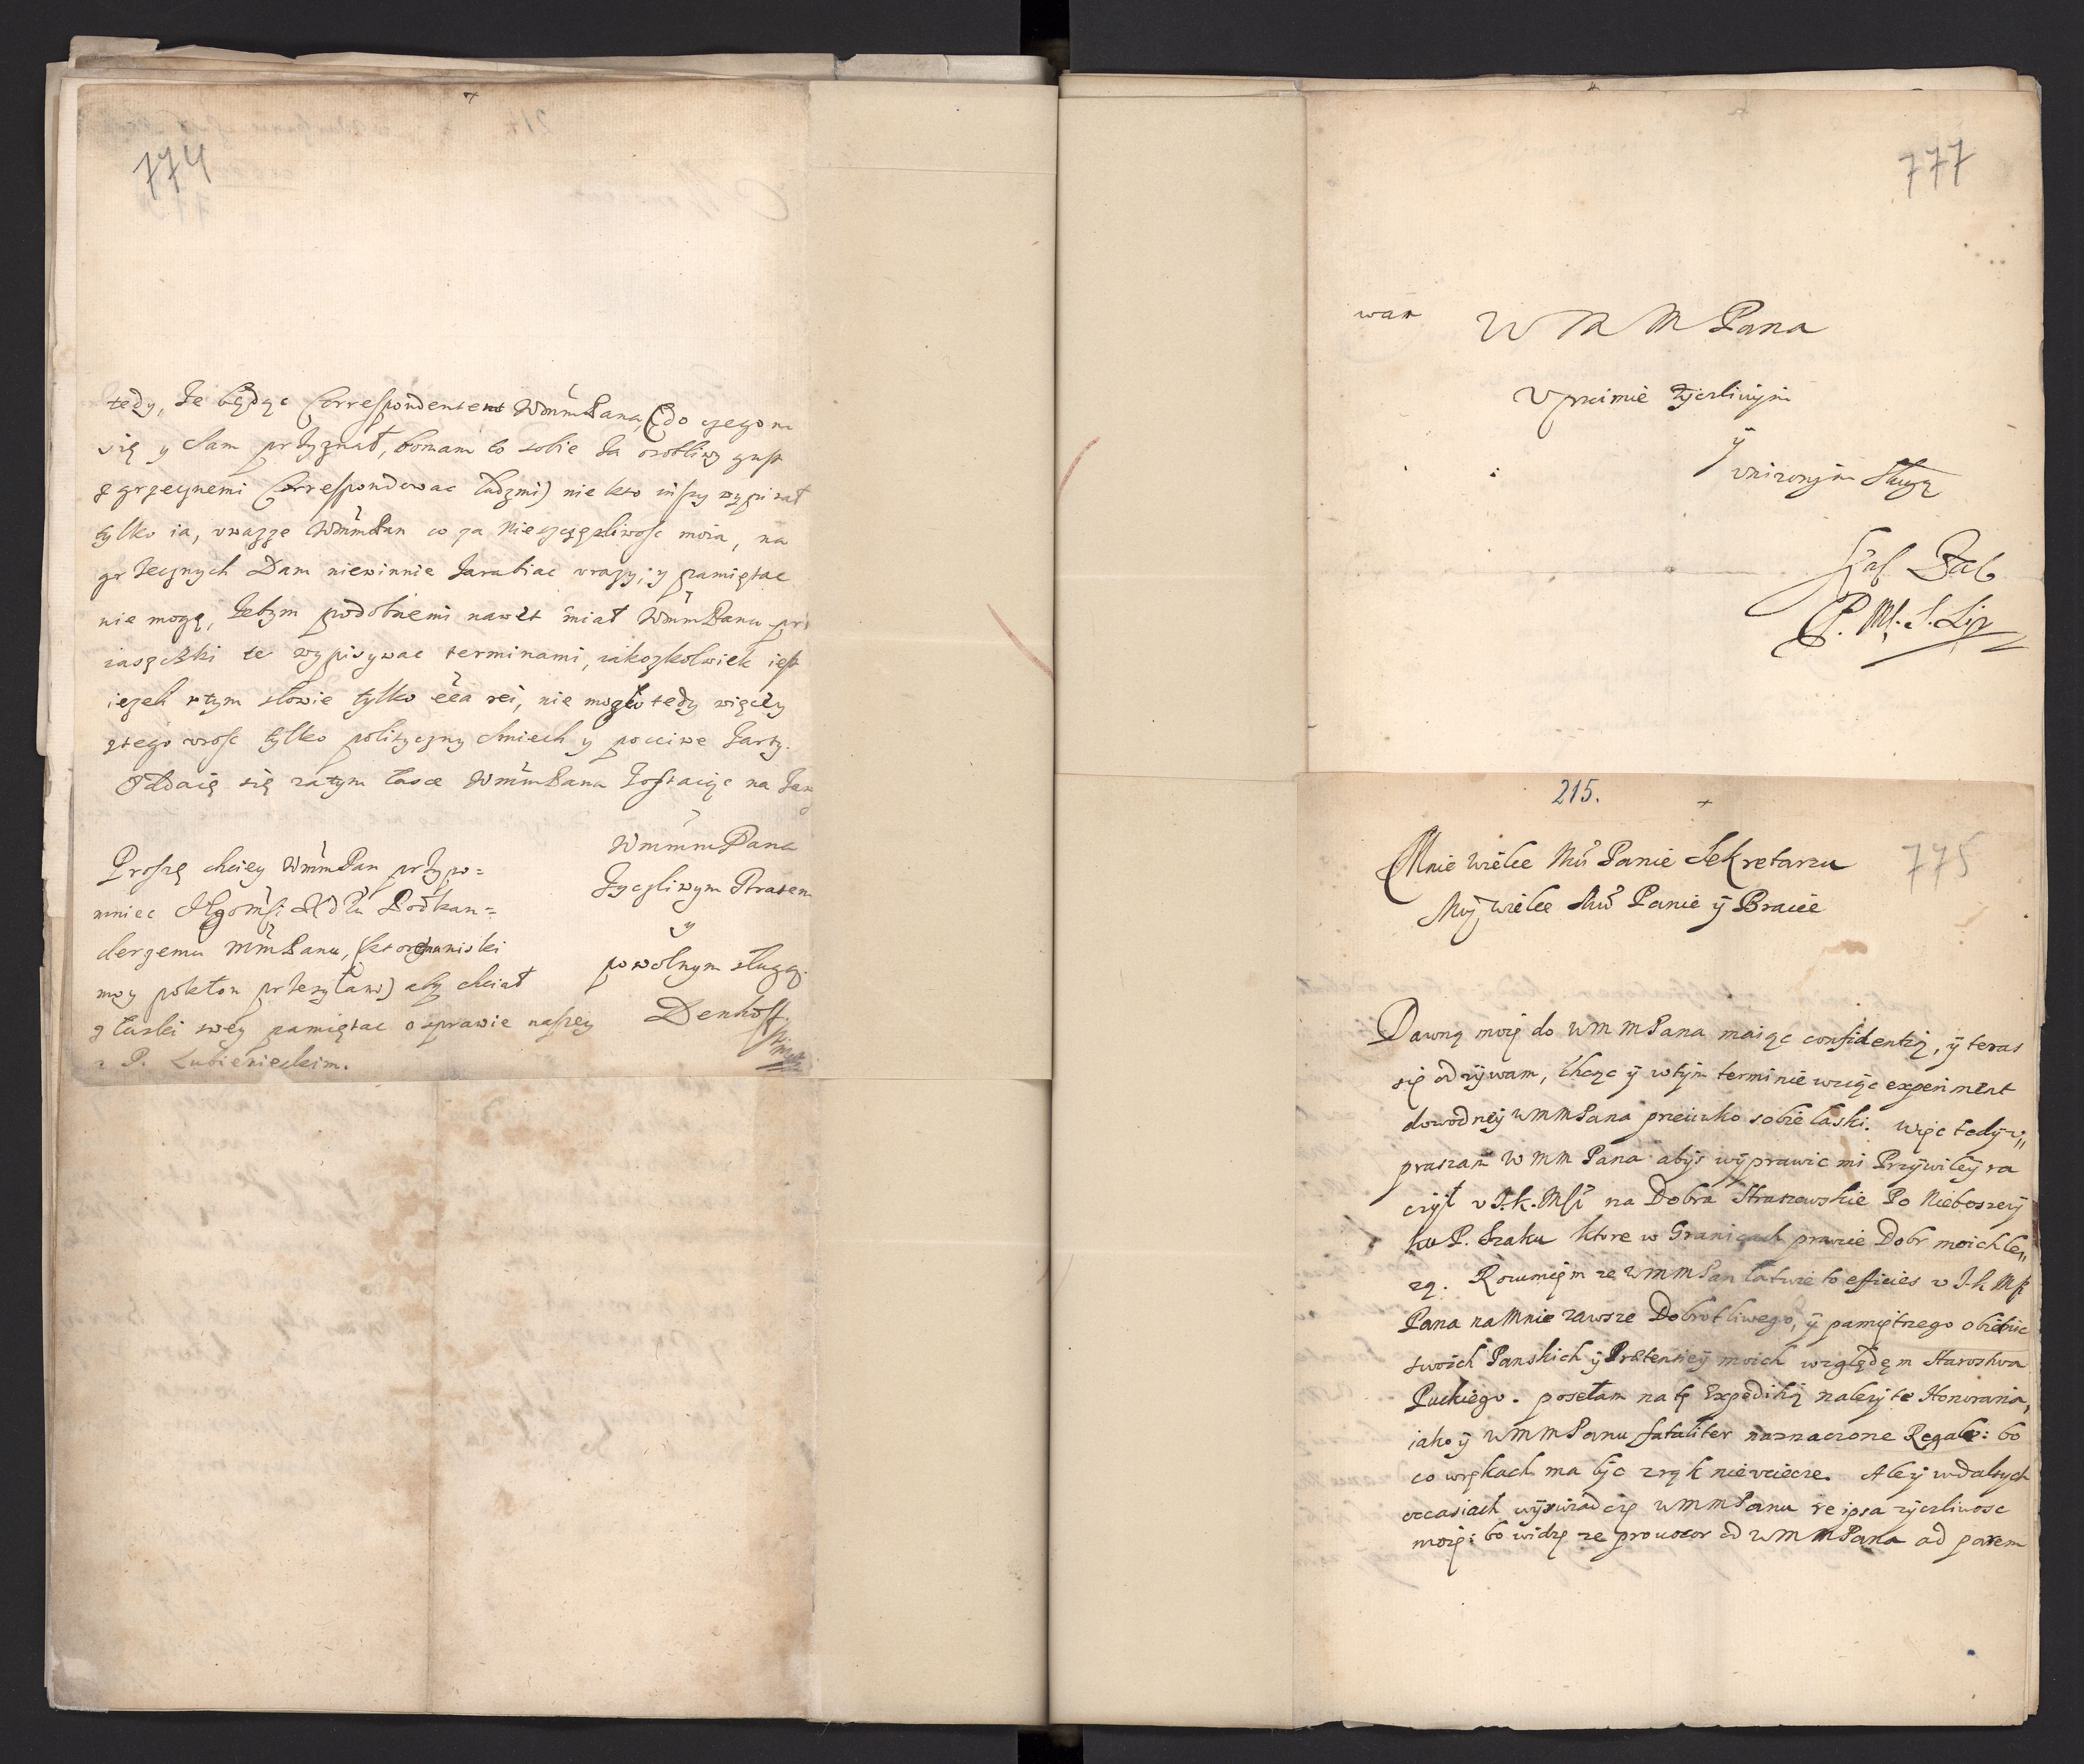 774
tedy, że będąc Correspondentem WmmPana, (do czegom
się y sam przyznał, bo mam to sobie za osobliwy gust
z grzecznemi Correspondowac ludzmi) nie kto inszy wypisał
tylko ia, uwazze WmmPan co za nieszczęsliwosc moia, na
grzecznych Dam niewinnie zarabiac urazy; y pamiętac
nie mogę, żebym podobnemi nawet miał WmmPanu
te wypisywac terminami, iakozkolwiek iest
iezeli w tym słowie tylko rei, nie mogło tedy więcey
z tego urosc tylko polityczny smiech y pocciwe żarty.
Oddaię się zatym łasce WmmPana zostaiąc na
WmmmPana
Zyczliwym Bratem
y
powolnym sługą
Denhoff
Proszę chciey WmmPan przypo=
mniec Podkan=
clerzemu MmPanu, (ktoremu niski
moy pokłon przesyłam) aby chciał
z łaski swey pamiętac o sprawie naszey
z P. Lubienieckim.
777
wam
W M M Pana
Uprzeimie zyczliwym
ÿ
unizonym sługą
P. M. S. Lip
215.
775
Mnie wielce Mśc Panie Sekretarzu
Moy wielce Mśc Panie ÿ Bracie
Dawną moię do WMMPana maiąc confidentią, ÿ teras
się odzÿwam, chcąc ÿ w tÿm terminie wziąc experiment
dowodneÿ WMMPana przeciwko sobie łaski. Więc tedÿ u„
praszam WMM Pana abÿs wÿprawic mi Przÿwileÿ ra
czÿł u J.K.Msci na Dobra Straszewskie Po Nieboszczÿ
ku P. Szaku ktore w Granicach prawie Dobr moich le„
zą. Rozumięm ze WMMPan łatwie to efficies u J K Msci
Pana na Mnie zawsze Dobrotliwego, ÿ pamiętnego obietnic
swoich Panskich ÿ Prætensieÿ moich względęm Starostwa
Puckiego. posełam na tę Expeditią nalezÿte Honoraria,
iako ÿ WMMPanu fataliter naznaczone Regale: bo
co w rękach ma bÿc z rąk nie uciecze. Ale ÿ w dalszÿch
occasiach wÿswiadczę WMMPanu re ipsa zÿczliwosc
moię: bo widzę ze prouocor od WMMPana ad parem